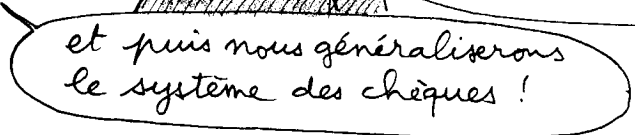 et puis nous généraliserons
le système des chèques !